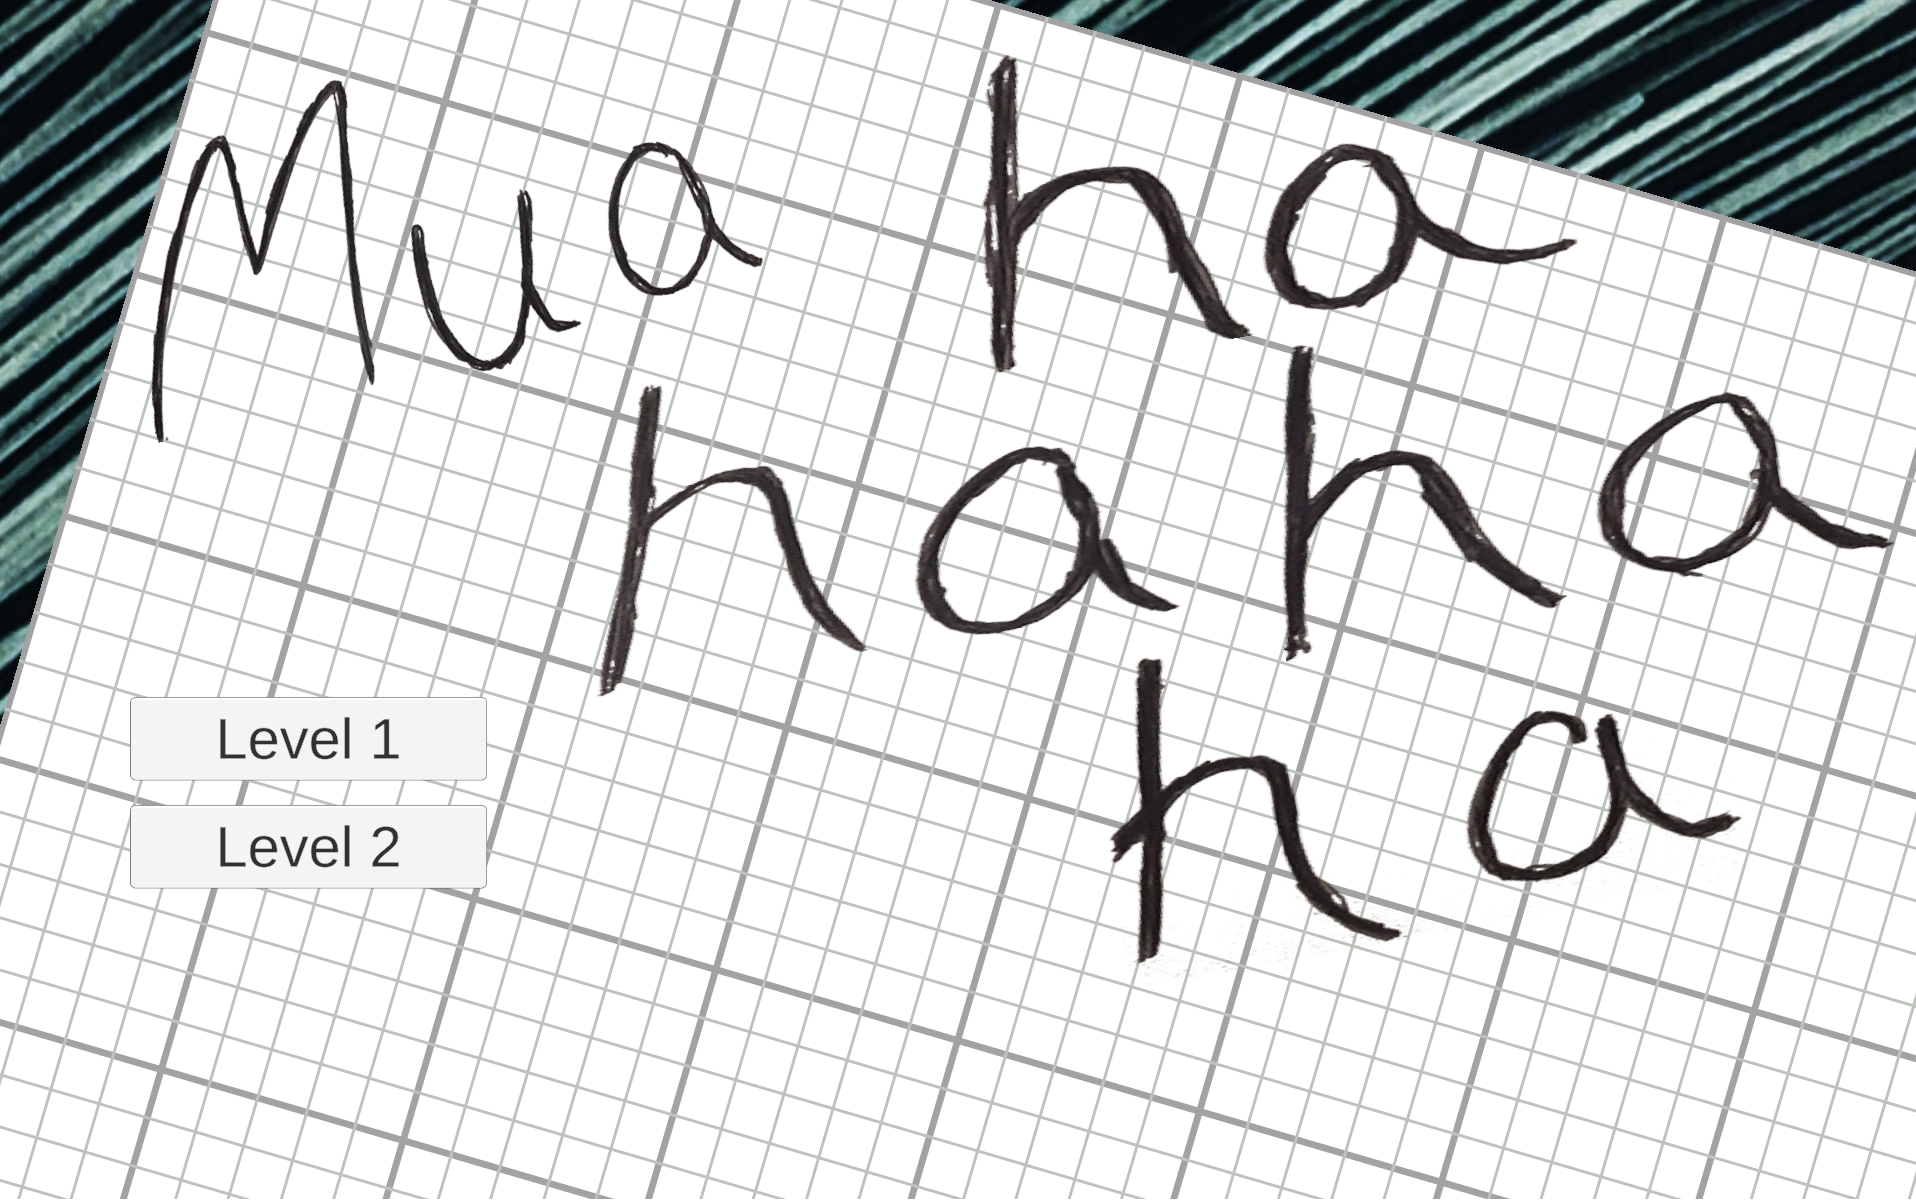 Mua ha
ha ha
ha
Level 1
Level 2